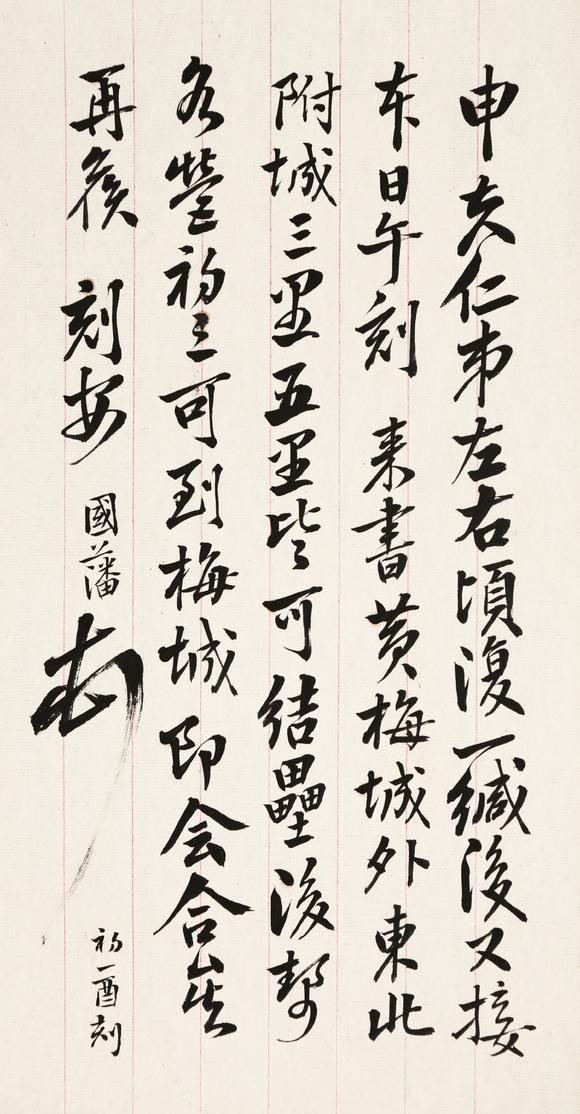 申夫仁弟左右頃復一緘後又接
本日午刻 来書黄梅城外東北
附城三里五里皆可結壘後幫
各營初三可到梅城即会合矣
再候 刻安
國藩
初一酉刻